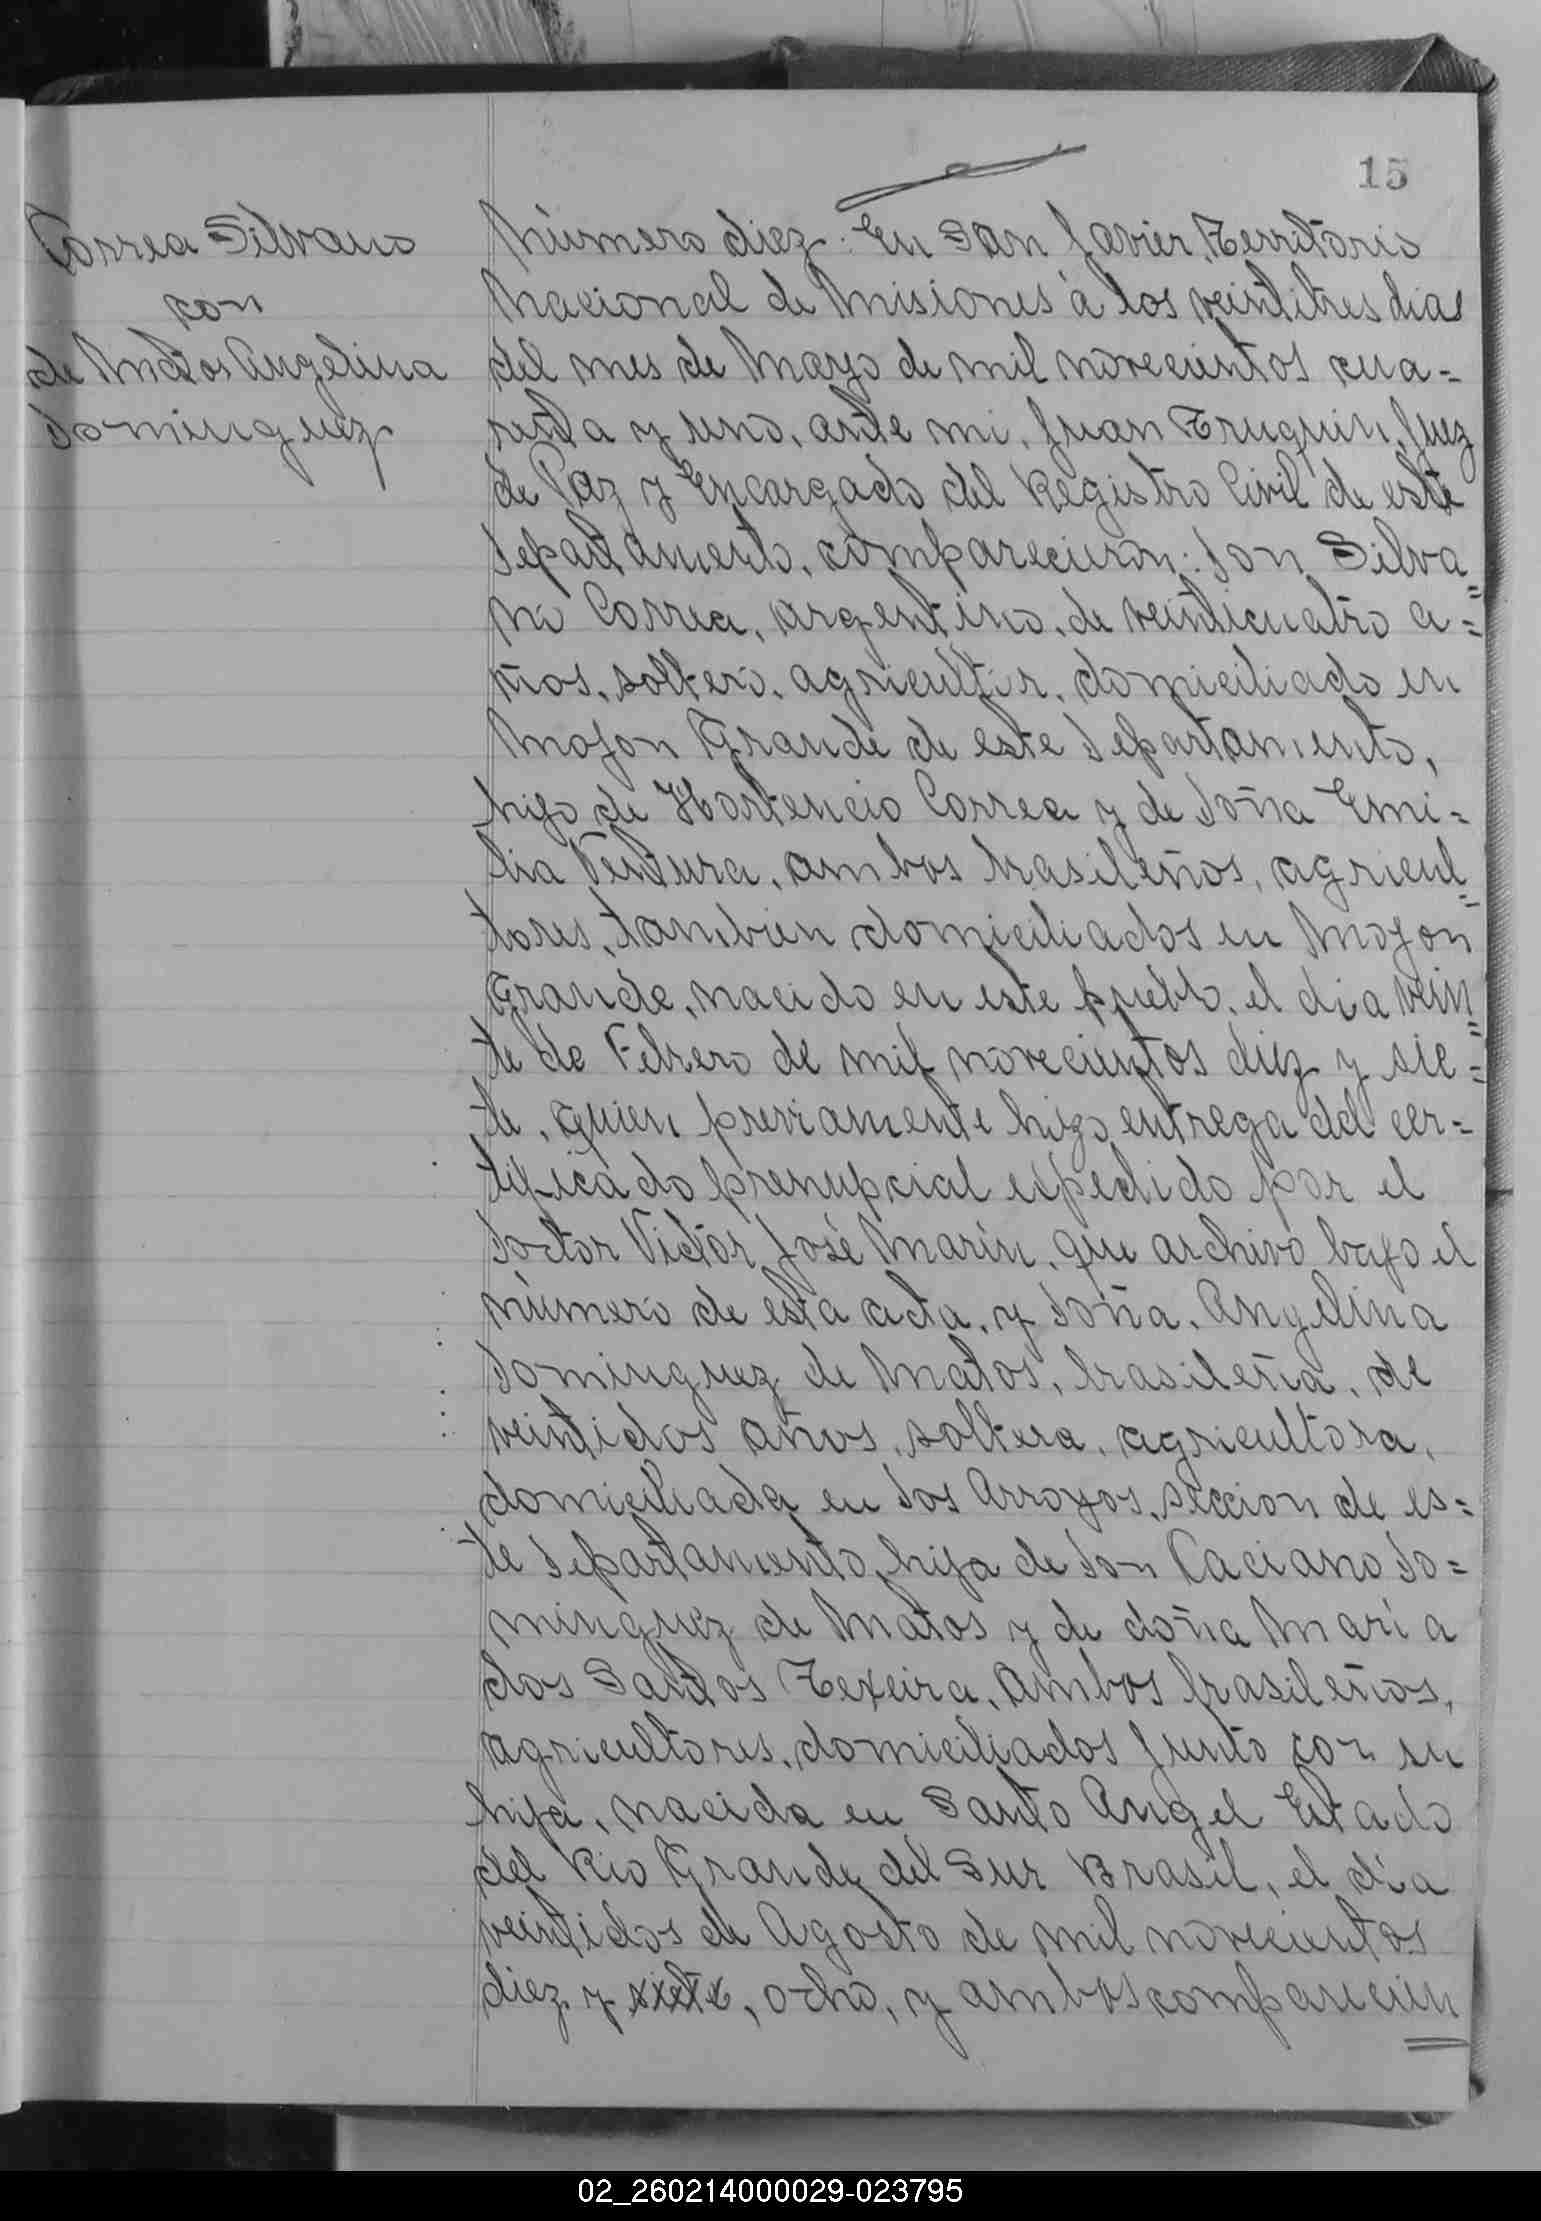 15
Correa Silvano
con
de Matos Angelina
Dominguez
Número diez: En San Javier, Territorio
Nacional de Misiones á los veintitres dias
del mes de Mayo de mil novecientos cua=
renta y uno, ante mi, Juan Truquin, Juez
de Paz y Encargado del Registro Civil de este
Departamento, comparecieron: Don Silva=
no Correa, argentino, de veinticuatro a=
ños, soltero, agricultor, domiciliado en
Mojon Grande de este Departamento,
hijo de Hortencio Correa y de Doña Emi=
lia Ventura, ambos brasileños, agricul=
tores, tambien domiciliados en Mojon
Grande, nacido en este pueblo, el dia vein=
te de Febrero de mil novecientos diez y sie=
te, quien previamente hizo entrega del cer=
tificado prenupcial expedido por el
Doctor Victor José Marín, que archivo bajo el
número de esta acta, y Doña, Angelina
Dominguez de Matos, brasileña, de
veintidos años, soltera, agricultora,
domiciliada en Dos Arroyos, seccion de es=
te Departamento, hija de Don Caciano Do=
minguez de Matos y de doña María
dos Santos Texeira, ambos brasileños,
agricultores, domiciliados junto con su
hija, nacida en Santo Angel Estado
del Rio Grande del Sur Brasil, el día
veintidos de Agosto de mil novecientos
diez y siete, ocho, y ambos comparecien
02_260214000029-023795